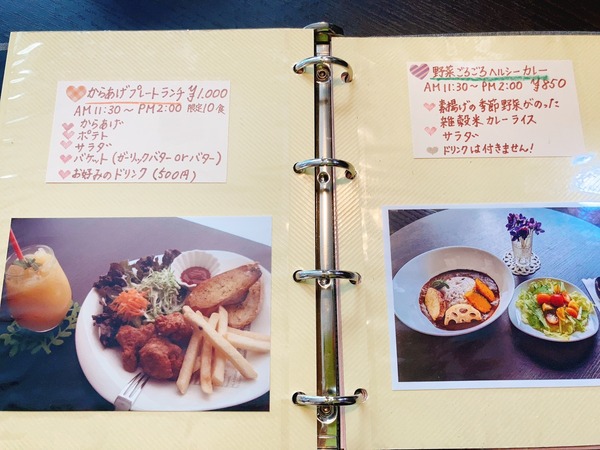 からあげプレートランチ ¥1.000
AM 11:30 ～ PM 2:00 限定10食
からあげ
ポテト
サラダ
バゲット (ガーリックバター or バター)
お好みのドリンク (500円)
野菜ごろごろヘルシーカレー
AM 11:30 ～ PM 2:00 ¥850
素揚げの季節野菜がのった
雑穀米カレーライス
サラダ
ドリンクは付きません!